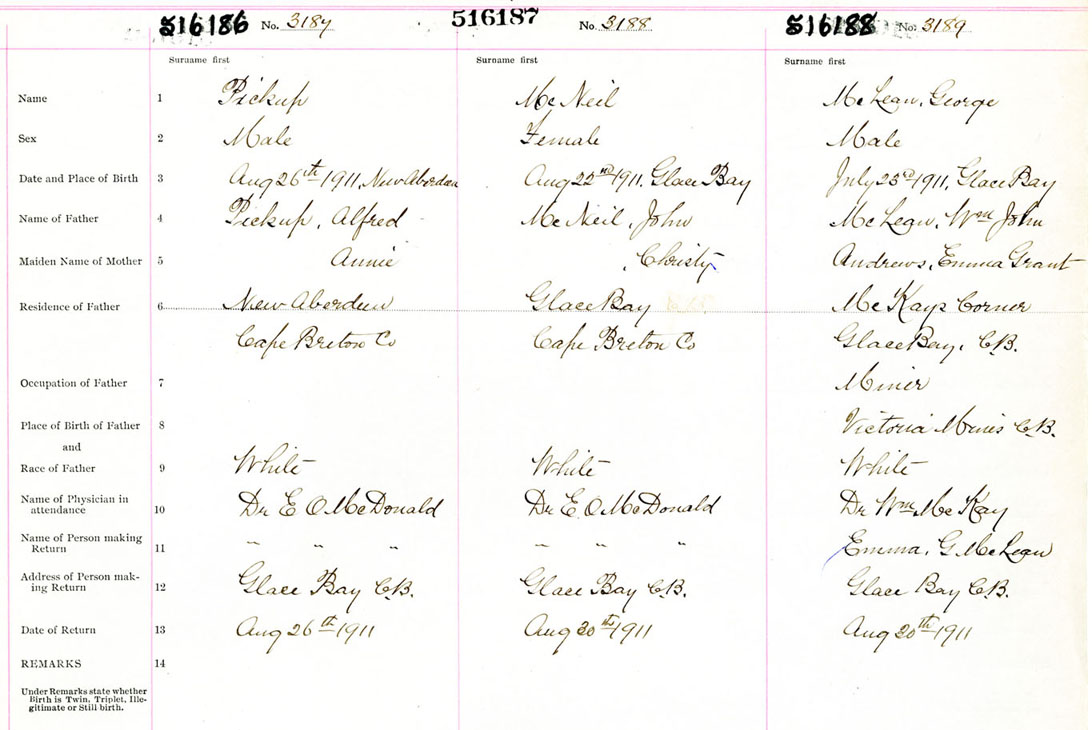 516186 No. 3187 516187 No. 3188 516188 No. 3189
Surname first Surname first Surname first
Name 1 Pickup Mc Neil Mc Lean, George
Sex 2 Male Female Male
Date and Place of Birth 3 Aug 26th 1911, New Aberdeen Aug 22nd 1911, Glace Bay July 23rd 1911, Glace Bay
Name of Father 4 Pickup, Alfred Mc Neil, John Mc Lean, Wm John
Maiden Name of Mother 5 Annie , Christy Andrews, Emma Grant
Residence of Father 6 New Aberdeen Glace Bay Mc Kays Corner
Cape Breton Co Cape Breton Co Glace Bay, C.B.
Occupation of Father 7 Miner
Place of Birth of Father 8 Victoria Mines C.B.
and
Race of Father 9 White White White
Name of Physician in
attendance 10 Dr E O McDonald Dr E O McDonald Dr Wm Mc Kay
Name of Person making
Return 11 " " " " " " Emma, G. McLean
Address of Person mak-
ing Return 12 Glace Bay C.B. Glace Bay C.B. Glace Bay C.B.
Date of Return 13 Aug 26th 1911 Aug 30th 1911 Aug 20th 1911
REMARKS 14
Under Remarks state whether
Birth is Twin, Triplet, Ille-
gitimate or Still birth.